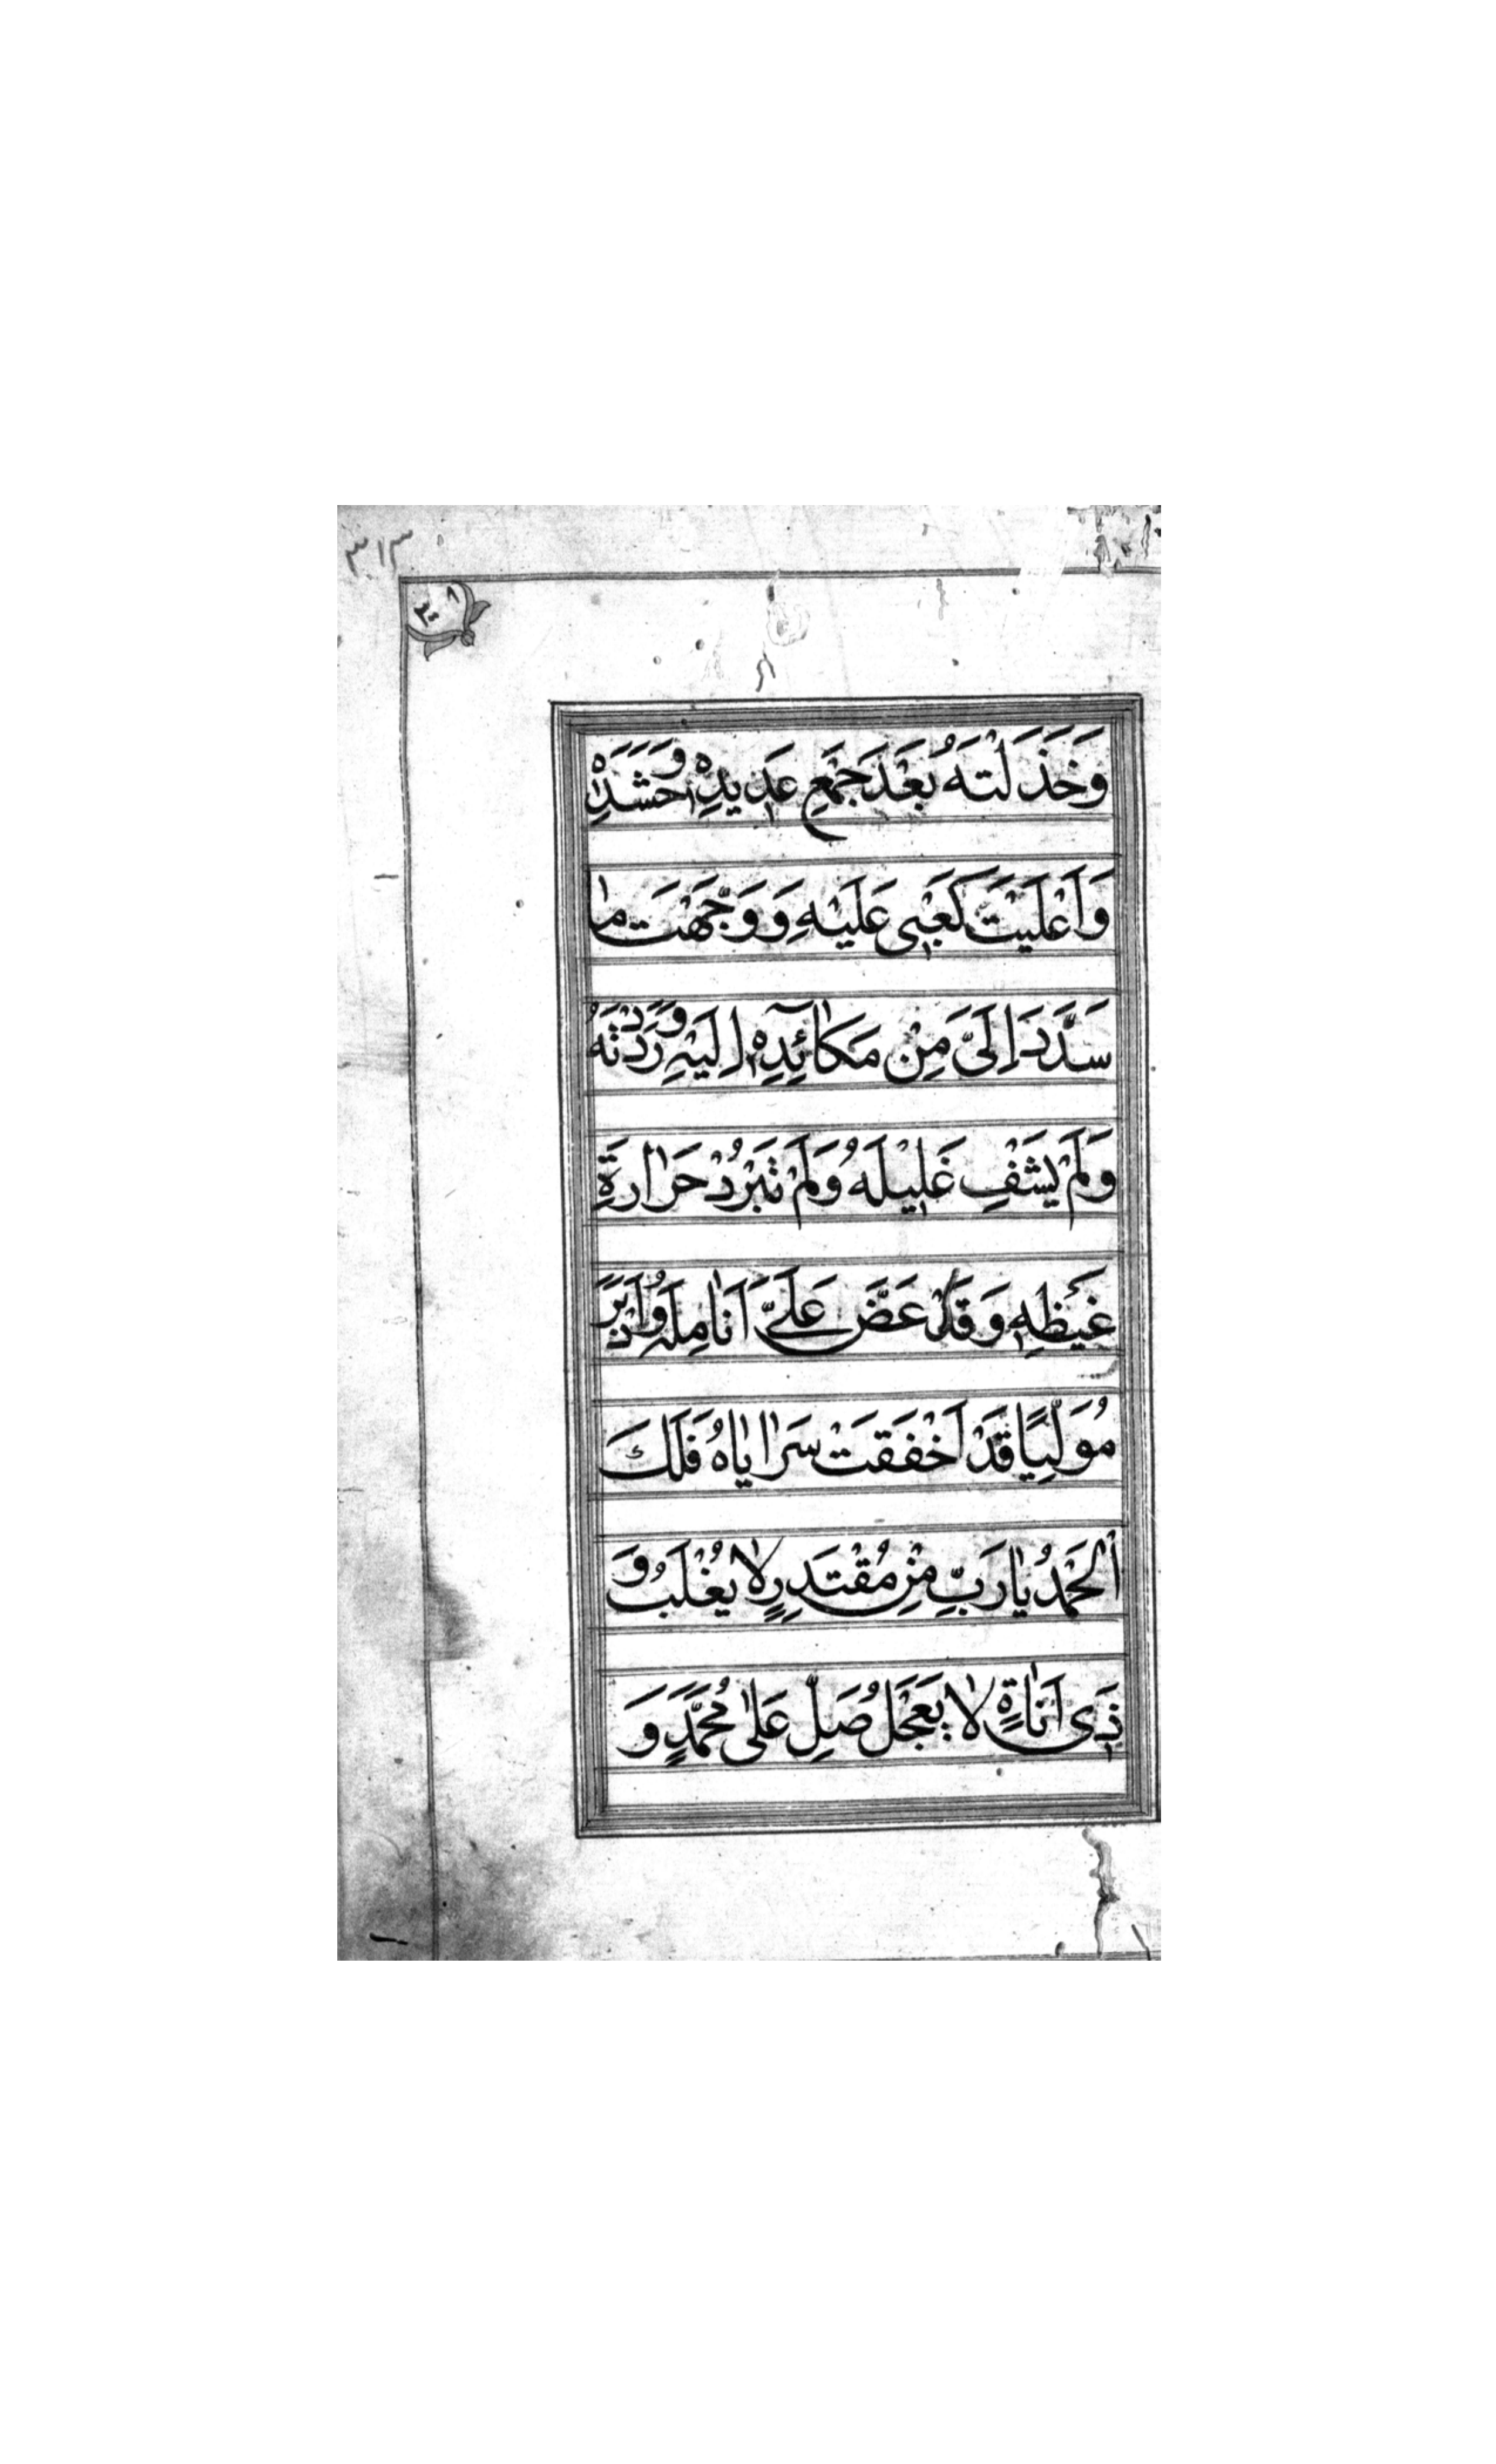 ٣١٣
وَخَذَلْتَهُ بَعْدَ جَمْعِ عَدِيدِهِ وَحَشَدِهِ
وَاَعْلَيْتَ كَعْبِى عَلَيْهِ وَوَجَّهْتَ مَا
سَدَّدَ اِلَىَّ مِنْ مَكَآئِدِهِ اِلَيْهِ وَرَدَدْتَهُ
وَلَمْ يَشْفِ غَلِيلَهُ وَلَمْ تَبْرُدْ حَرَارَةِ
غَيْظِهِ وَقَدْ عَضَّ عَلَىَّ اَنَامِلَهُ وَاَدْبَرَ
مُوَلِّيًا قَدْ اَخْفَقَتْ سَرَايَاهُ فَلَكَ
اْلحَمْدُ يَارَبِّ مِنْ مُقْتَدِرٍ لَا يُغْلَبُ وَ
ذِى اَنَاةٍ لَا يَعْجَلُ صَلِّ عَلَى مُحَمَّدٍ وَ